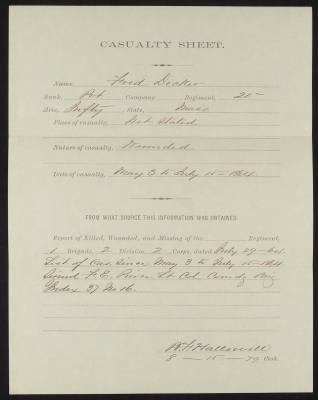 CASUALTY SHEET.
Name, Fred Decker
Rank, Pvt Company Regiment, 20"
Arm, Infty State, Mass
Place of casualty, Not Stated
Nature of casualty, Wounded
Date of casualty, May 3 to July 15-1864
FROM WHAT SOURCE THIS INFORMATION WAS OBTAINED:
Report of Killed, Wounded, and Missing of the Regiment,
1 Brigade, 2 Division, 2 Corps, dated July 29-64
List of Cas. since May 3 to July 15-1864
Signed F. E. Lt Col. Comdg Brig
Index 37 No 16.
Hallowell
8 - 15 - 79 Clerk.